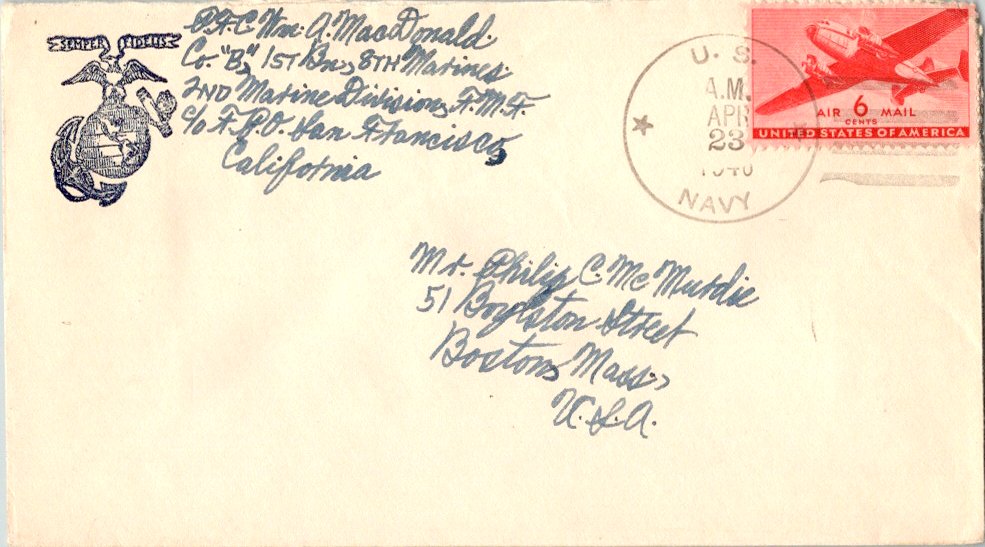 SEMPER FIDELIS
P.F.C Wm. A. MacDonald.
Co. "B", 1ST Bn., 8TH Marines.
2ND Marine Division, F.M.F.
c/o F.P.O. San Francisco,
California
U. S.
A.M.
APR
23
1946
NAVY
AIR 6 MAIL
CENTS
UNITED STATES OF AMERICA
Mr. Philip C. Mc Murdie
51 Boylston Street
Boston, Mass.,
U.S.A.